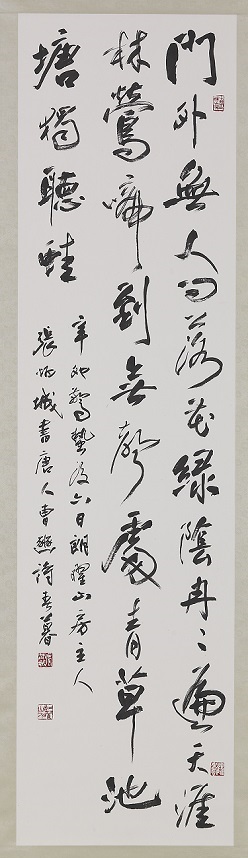 門外無人問落花綠陰冉々遍天涯
林鶯啼到無聲處青草池
塘獨聽蛙
辛巳驚蟄後六日朗曜山房主人
張炳城書唐人曹豳詩春暮